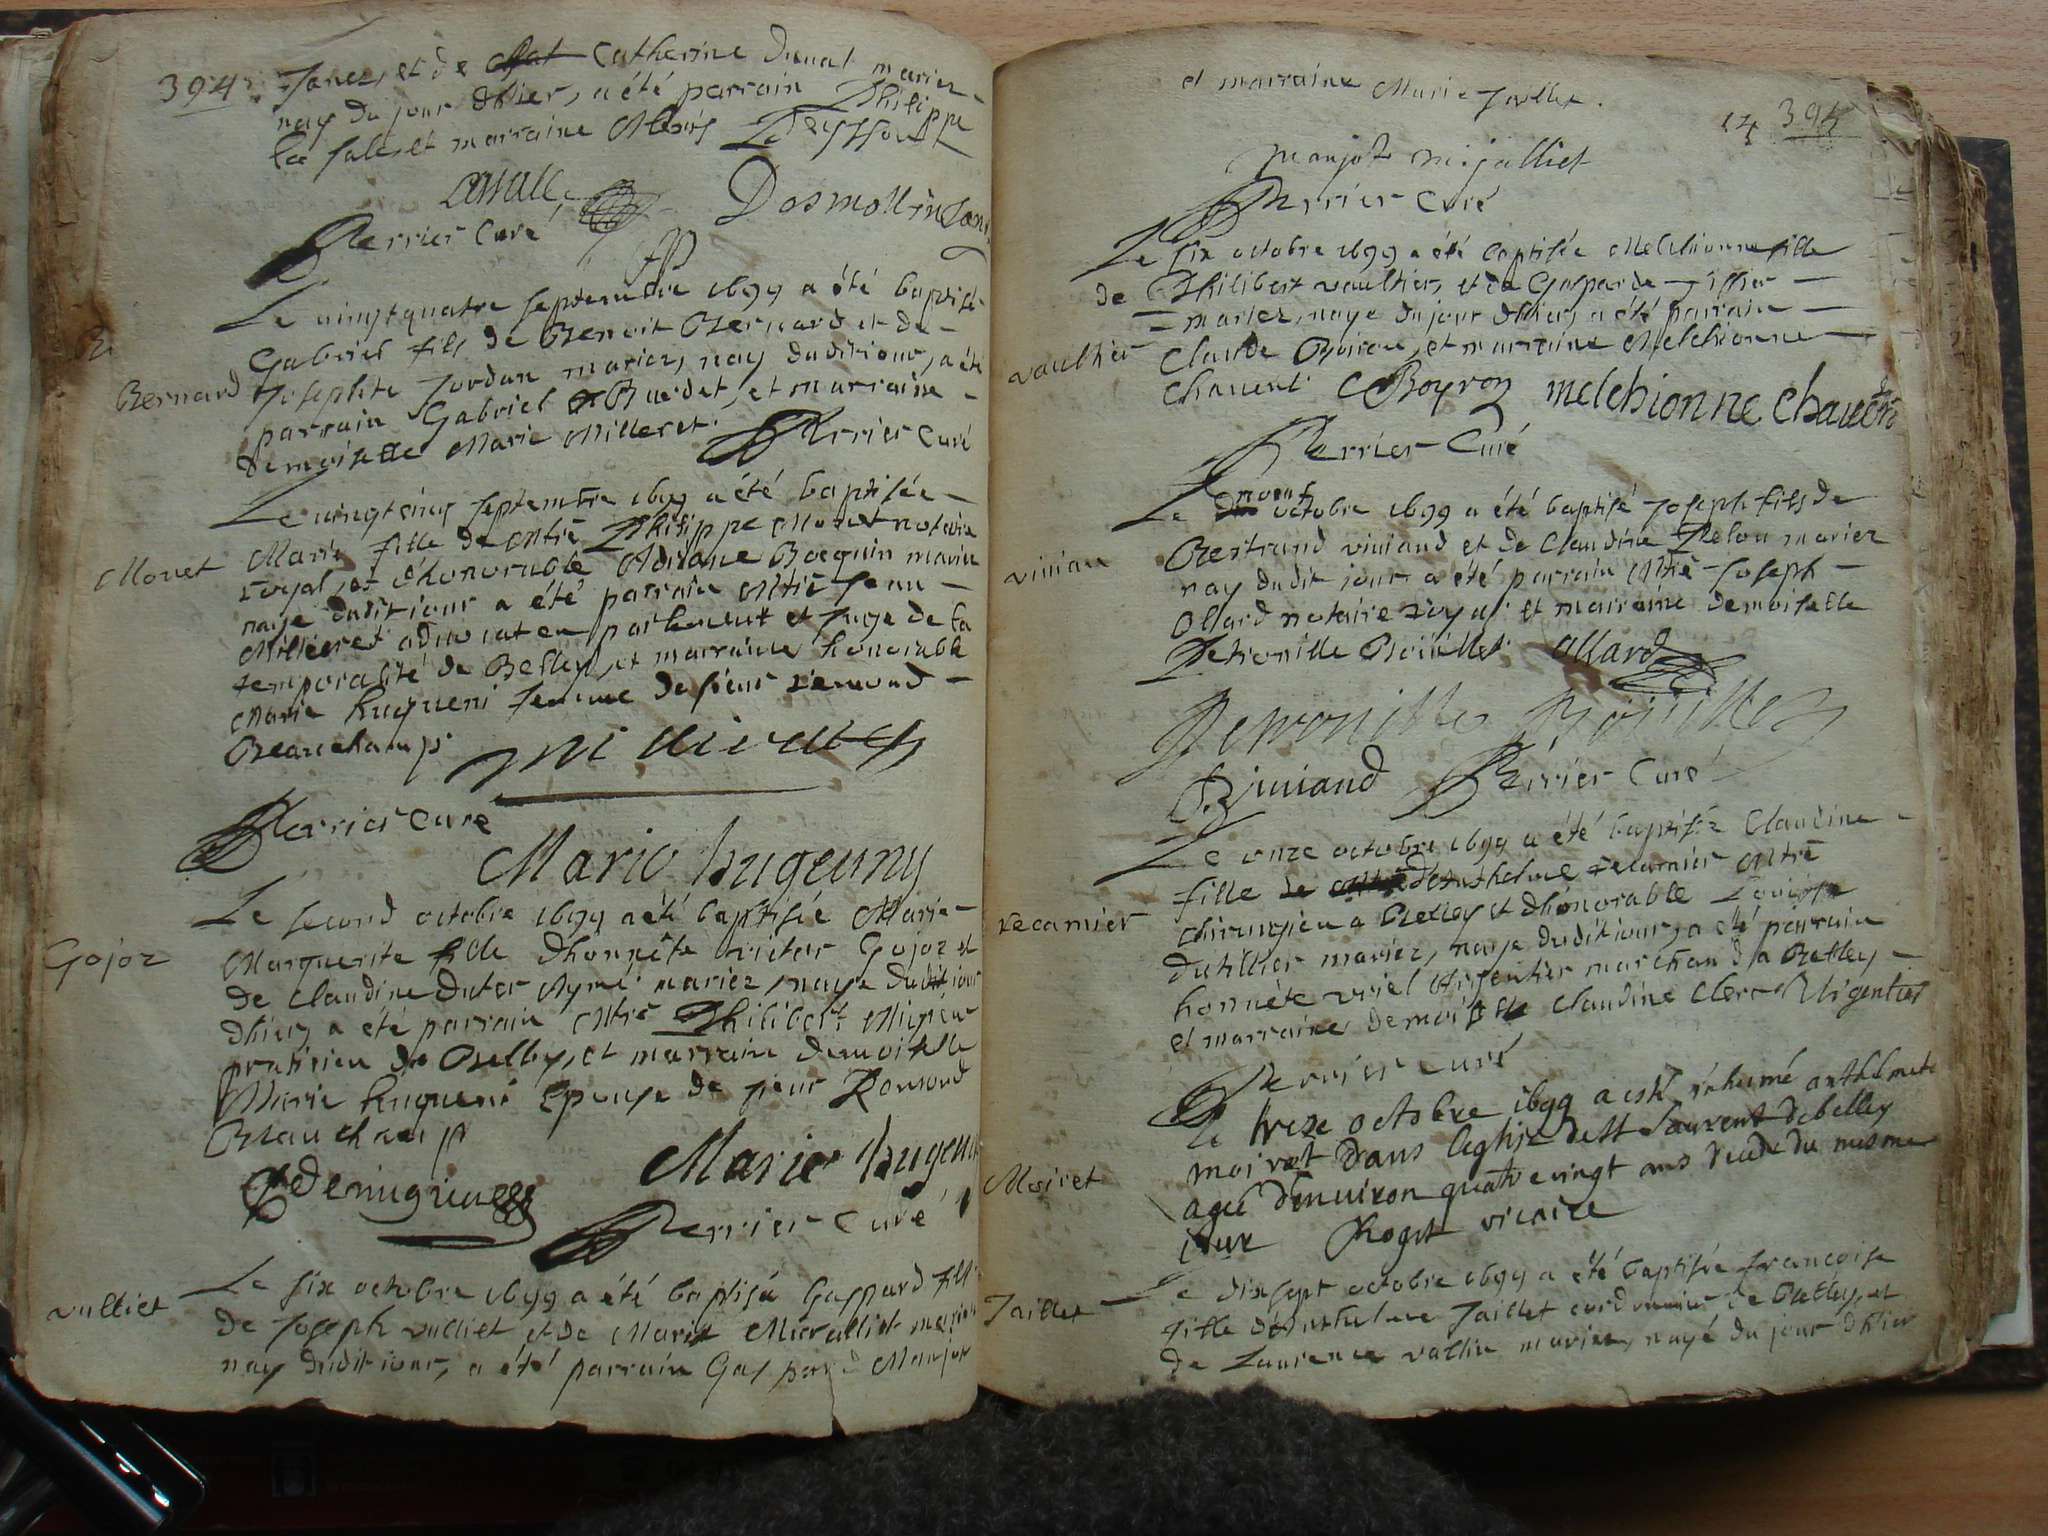 394
Janez, et de Catherine Duval mariez
nay du jour dhier, a été parrain Philippe
la sale, et marraine
Lasalle
Perrier Curé
Le vingtquatre septembre 1699 a été baptisé
Bernard
Gabriel fils de Benoit Bernard et de
Josephte Jordan mariez, nay dudit iour, a été
parrain Gabriel Burdet, et marraine
demoiselle Marie Milleret. Perrier Curé
Le vingtcinq septembre 1699 a été baptisée
Monet
Marie fille de Mtre Philippe Monet notaire
royal, et d'honorable Adriane Bocquin mariez
naye dudit iour a été parrain Mtre Jean
Millieret advocat en parlement et juge de la
temporalité de Belley, et marraine honorable
Marie hugueni femme de sieur remond
Beauchamps
Milleret
Perrier Curé
Marie hugeuny
Le second octobre 1699 a été baptisée Marie
Gojoz
Marguerite fille dhonnête victor Gojoz et
de Claudine Duter Aymé mariez, naye dudit iour
dhier, a été parrain Mtre Philibert Mugieur
praticien de Belley, et marrain demoiselle
Marie hugueni Epouse de sieur Remond
Beauchamp
Marie hugeuny
Perrier Curé
Le six octobre 1699 a été baptisé Gaspard fils
vulliet
de Joseph vulliet et de Marie Miralliet mariez
nay dudit iour, a été parrain Gaspard Manjot
et marraine Marie Jalliet.
14 395
manjot m. jalliet
Perrier Curé
Le six octobre 1699 a été baptisée Melchionne fille
de Philibert vaultier, et de Gasparde
mariez, naye du jour dhier, a été parrain
vaultier
Claude Boiron, et marraine Melchionne
Chauent. C Boyron melchionne Chauent
Perrier Curé
neuf
Le octobre 1699 a été baptisé Joseph fils de
viniau
Bertrand viniand et de Claudine Pelou mariez
nay dudit jour a été parrain Mtre Joseph
Allard notaire royal et marraine demoiselle
Petronille Boiullet. Allard
Petronille Boiullet
B Viniand Perrier Curé
Le onze octobre 1699 a été baptisée Claudine
fille danthelme recamier Mtre
recamier
chirurgien a Belley et dhonorable Louise
Dutillier mariez, naye dudit iour, a été parrain
honnête vriel Argentier marchand a Belley
et marraine demoiselle Claudine Clerc Argentier
Perrier Curé
Le treze octobre 1699 a esté inhumé anthelmete
Moiret
moiret dans leglise de St Laurent de belley
agé denuiron quatrevingt ans décédé du mesme
iour Roget vicaire
Le dixsept octobre 1699 a été baptisée francoise
Jaillet
fille danthelme Jaillet cordonnier de Belley, et
de Laurence vallin mariez, nayé du jour dhier